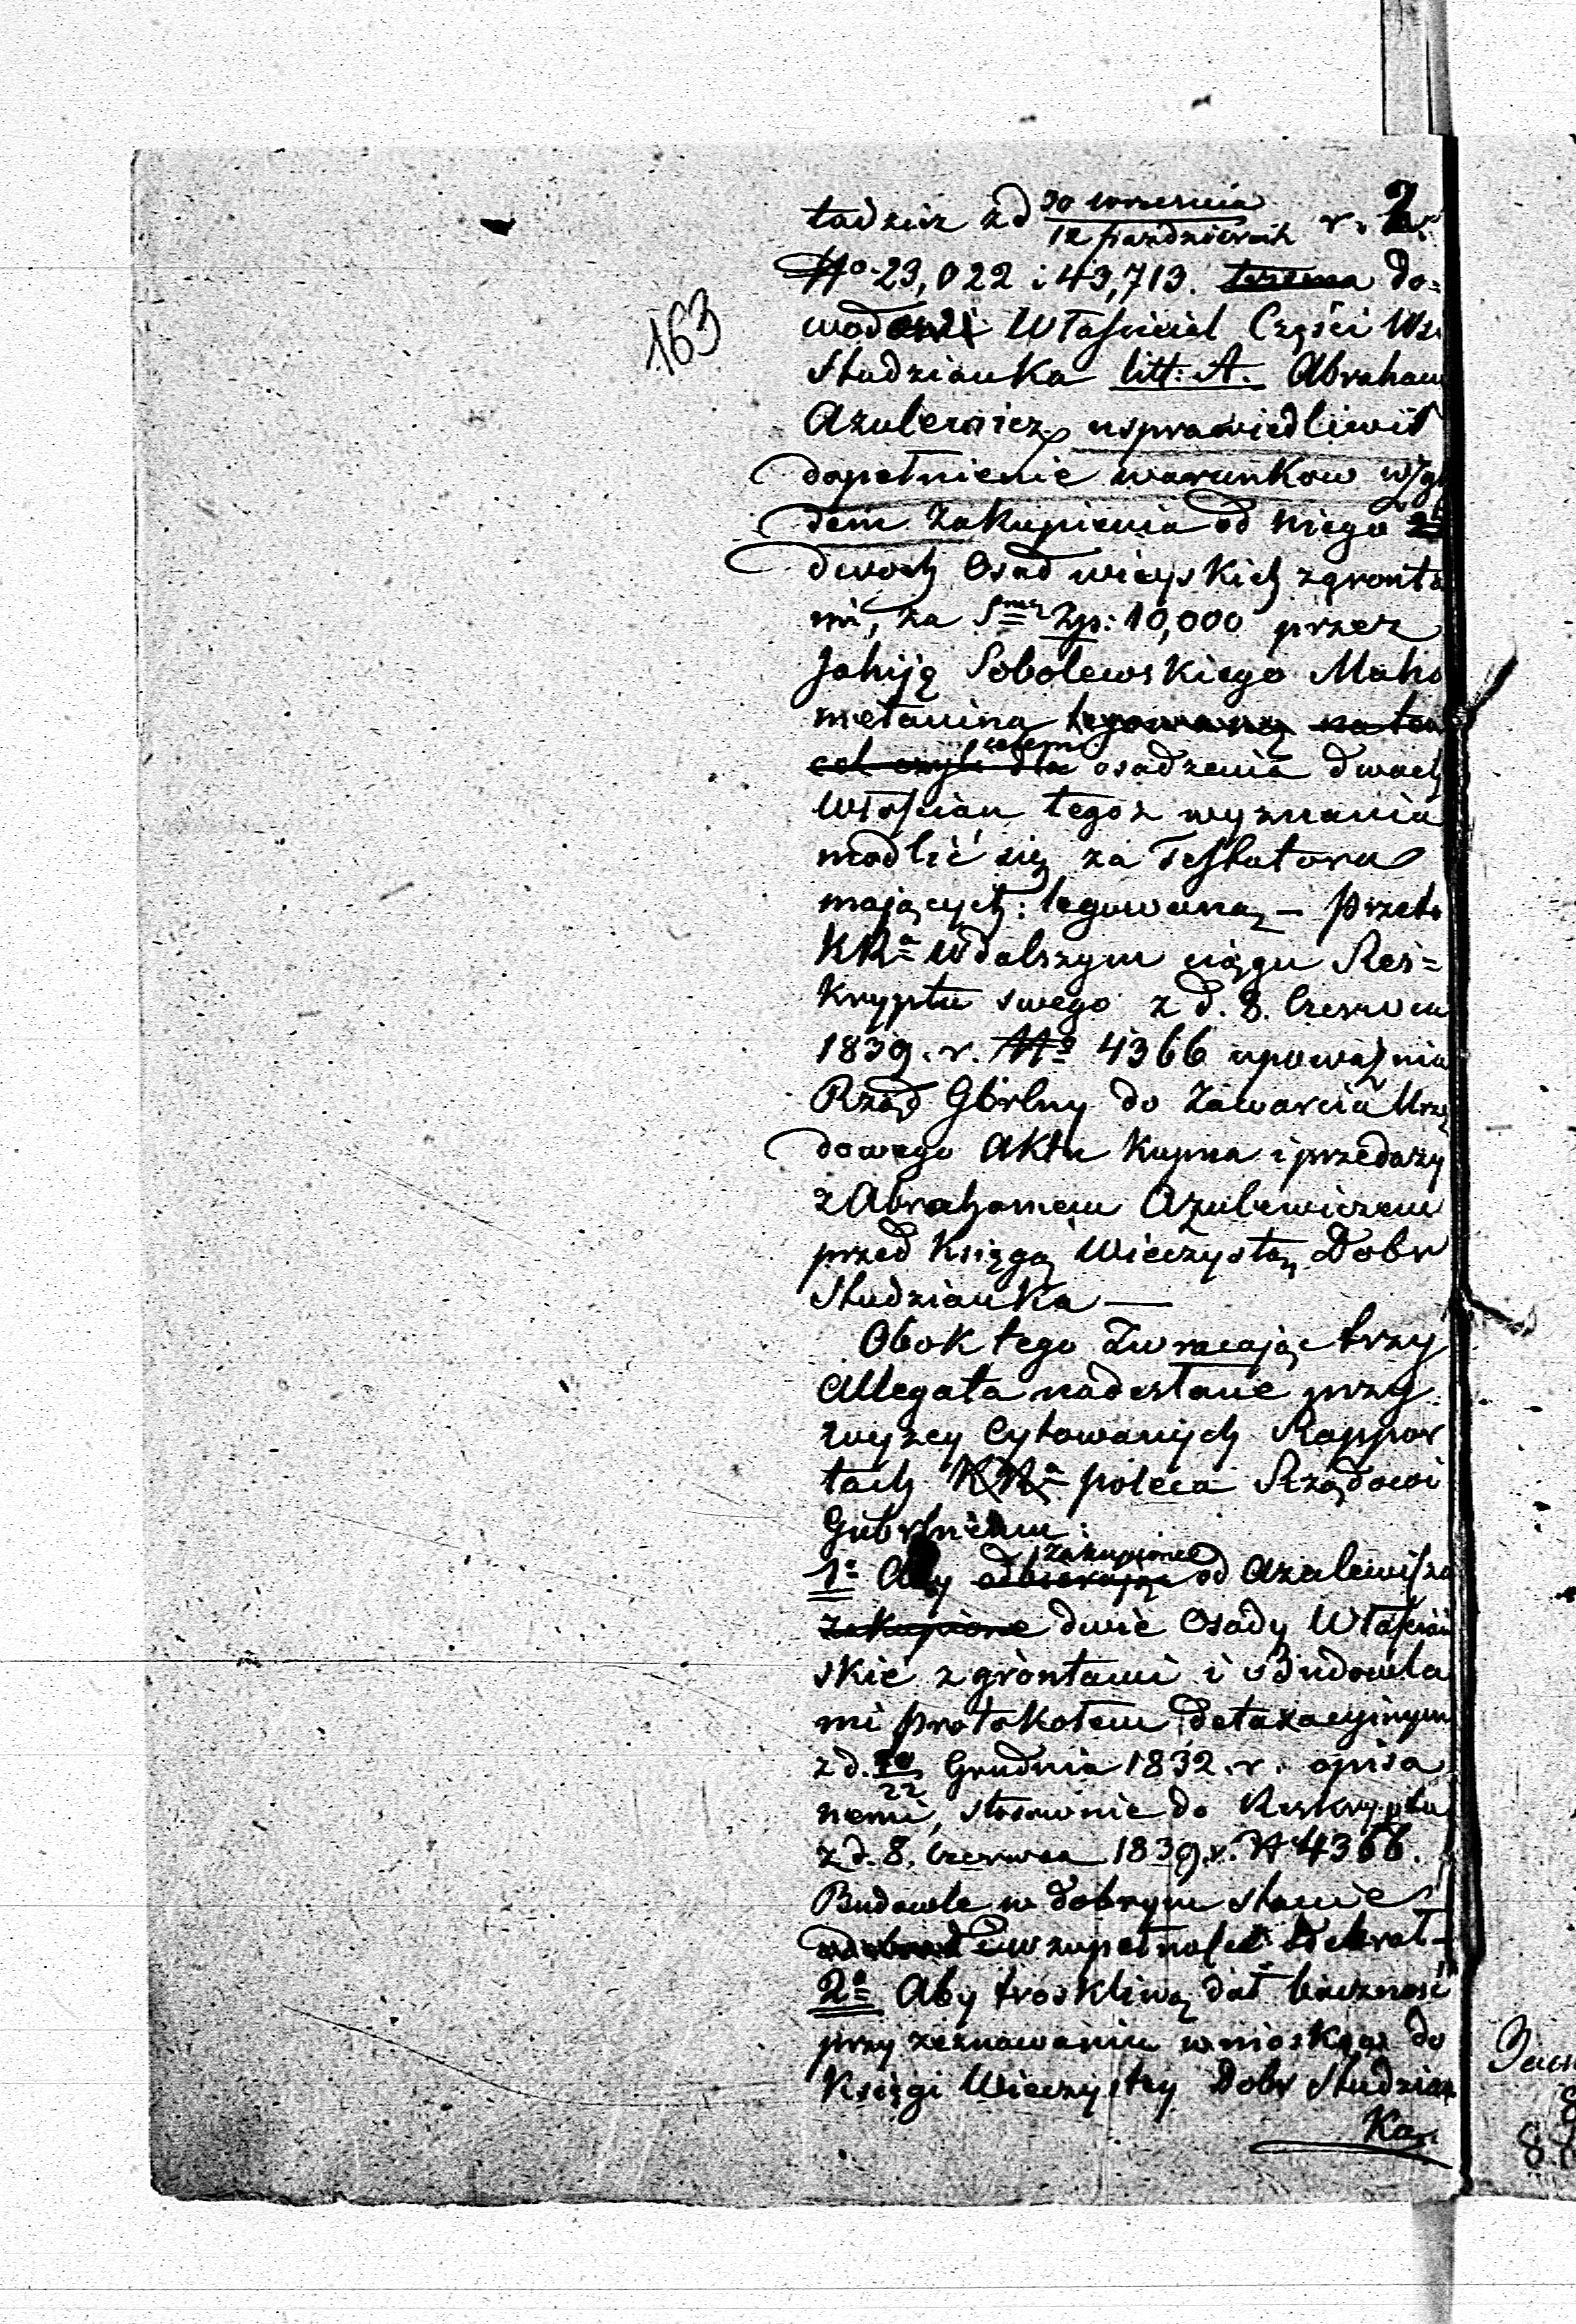 tudzież z d 30 września / 12 październik r.
No 23,022 i 43,713. do=
wodami Właściciel Części Wsi
Studzianka litt: A. Abraham
Azulewicz, usprawiedliwił
dopełnienie warunkow wzglę
dem Zakupienia od niego
dwoch Osad wieyskich z gronta
mi, za Smę Zp: 10,000 przez
Jahiją Sobolewskiego Maho
metanina
celem osadzenia dwoch
Włościan tegoż wyznania
modlić się za Testatora
mających: legowaną — przeto
KRa w dalszym ciągu Res=
kryptu swego z d. 8. Czerwca
1839. r. No 4366 upoważnia
Rząd Gbrlny do Zawarcia Urzę
dowego Aktu Kupna i przedaży
z Abrahamem Azulewiczem
przed Księgą Wieczystą Dobr
Studzianka —
Obok tego Zwracając trzy
Allegata nadesłane przy
wyżey Cytowanych Rappor
tach KRa poleca Rządowi
Gubrlniemu:
1o Aby zakupione od Azulewicza
zakupione dwie Osady Włościań
skie z grontami i Budowla
mi protokołem detaxacyinym
z d. 10/22 Grudnia 1832. r. opisa
nemi, stosownie do Reskryptu
z d. 8. Czerwca 1839. r. N 4366.
Budowle w dobrym stanie
i w zupełności odebrał —
2o Aby troskliwą dał baczność
przy zeznawaniu wnioskow do
Księgi Wieczystey Dobr Studzian
Ka.
163
2